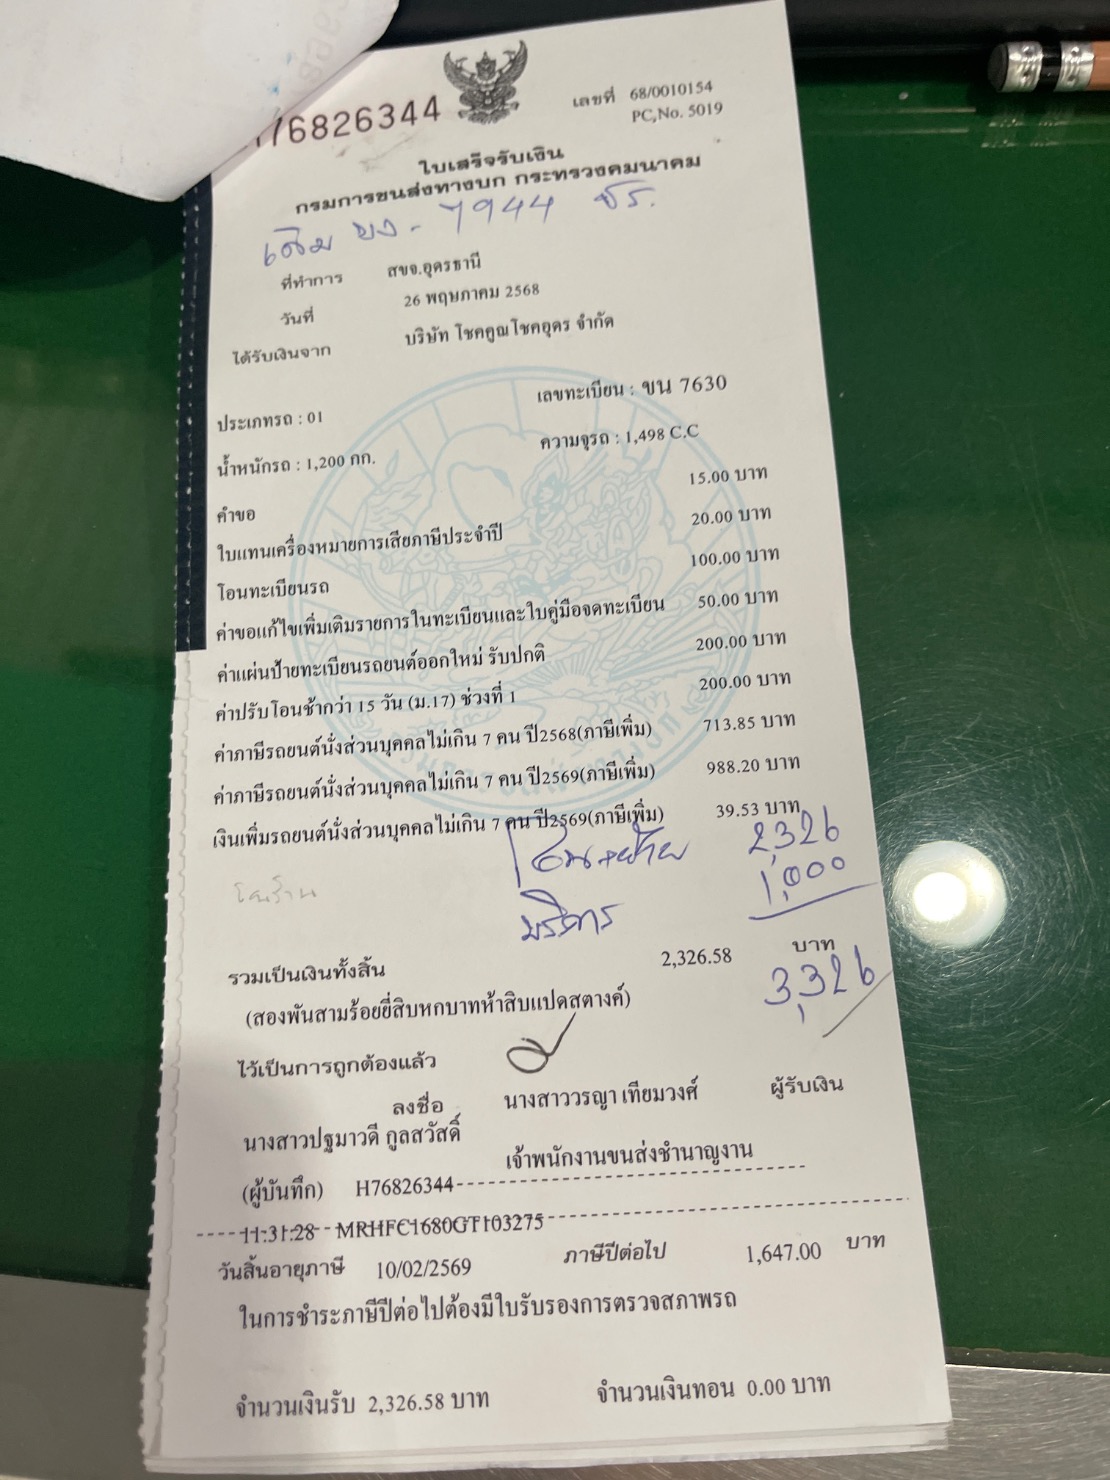 76826344
เลขที่ 68/0010154
PC,No. 5019
ใบเสร็จรับเงิน
กรมการขนส่งทางบก กระทรวงคมนาคม
เดิม ขง - 7944 ชร.
ที่ทำการ สขจ.อุดรธานี
วันที่ 26 พฤษภาคม 2568
ได้รับเงินจาก บริษัท โชคคูณโชคอุดร จำกัด
ประเภทรถ : 01 เลขทะเบียน : ขน 7630
น้ำหนักรถ : 1,200 กก. ความจุรถ : 1,498 C.C
คำขอ 15.00 บาท
ใบแทนเครื่องหมายการเสียภาษีประจำปี 20.00 บาท
โอนทะเบียนรถ 100.00 บาท
ค่าขอแก้ไขเพิ่มเติมรายการในทะเบียนและใบคู่มือจดทะเบียน 50.00 บาท
ค่าแผ่นป้ายทะเบียนรถยนต์ออกใหม่ รับปกติ 200.00 บาท
ค่าปรับโอนช้ากว่า 15 วัน (ม.17) ช่วงที่ 1 200.00 บาท
ค่าภาษีรถยนต์นั่งส่วนบุคคลไม่เกิน 7 คน ปี2568(ภาษีเพิ่ม) 713.85 บาท
ค่าภาษีรถยนต์นั่งส่วนบุคคลไม่เกิน 7 คน ปี2569(ภาษีเพิ่ม) 988.20 บาท
เงินเพิ่มรถยนต์นั่งส่วนบุคคลไม่เกิน 7 คน ปี2569(ภาษีเพิ่ม) 39.53 บาท
โอน+ย้าย 2,326
บริการ 1,000
รวมเป็นเงินทั้งสิ้น 2,326.58 บาท
(สองพันสามร้อยยี่สิบหกบาทห้าสิบแปดสตางค์) 3,326
ไว้เป็นการถูกต้องแล้ว
ลงชื่อ นางสาววรญา เทียมวงศ์ ผู้รับเงิน
นางสาวปฐมาวดี กูลสวัสดิ์
เจ้าพนักงานขนส่งชำนาญงาน
(ผู้บันทึก) H76826344
11:31:28 MRHFC1680GT103275
วันสิ้นอายุภาษี 10/02/2569 ภาษีปีต่อไป 1,647.00 บาท
ในการชำระภาษีปีต่อไปต้องมีใบรับรองการตรวจสภาพรถ
จำนวนเงินรับ 2,326.58 บาท จำนวนเงินทอน 0.00 บาท